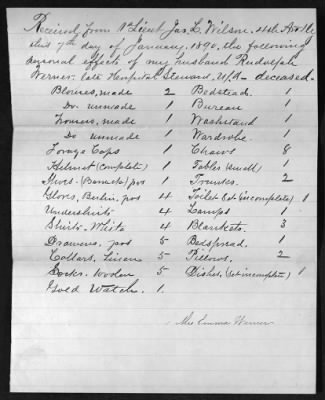 Received from 1st Lieut Jas. L. Wilson, 4th Art'y
this 7th day of January, 1890, the following
personal effects of my husband Rudolph
Werner, late Hospital Steward, U.S.A - deceased.
Blouses, made 2 Bedstead. 1
Do. unmade 1 Bureau 1
Trousers, made 1 Washstand 1
Do unmade 1 Wardrobe. 1
Forage Caps 1 Chairs 8
Helmet (complete) 1 Tables (small) 1
Shoes. (Barrack) prs 1 Trunks. 2
Gloves, Berlin, prs 4 Toilet Set (incomplete) 1
Undershirts 4 Lamps 1
Shirts. White 4 Blankets. 3
Drawers, prs 5 Bedspread. 1
Collars, Linen 5 Pillows. 2
Socks. Woolen 5 Dishes, (set incomplete) 1
Gold Watch. 1.
Mrs Emma Werner